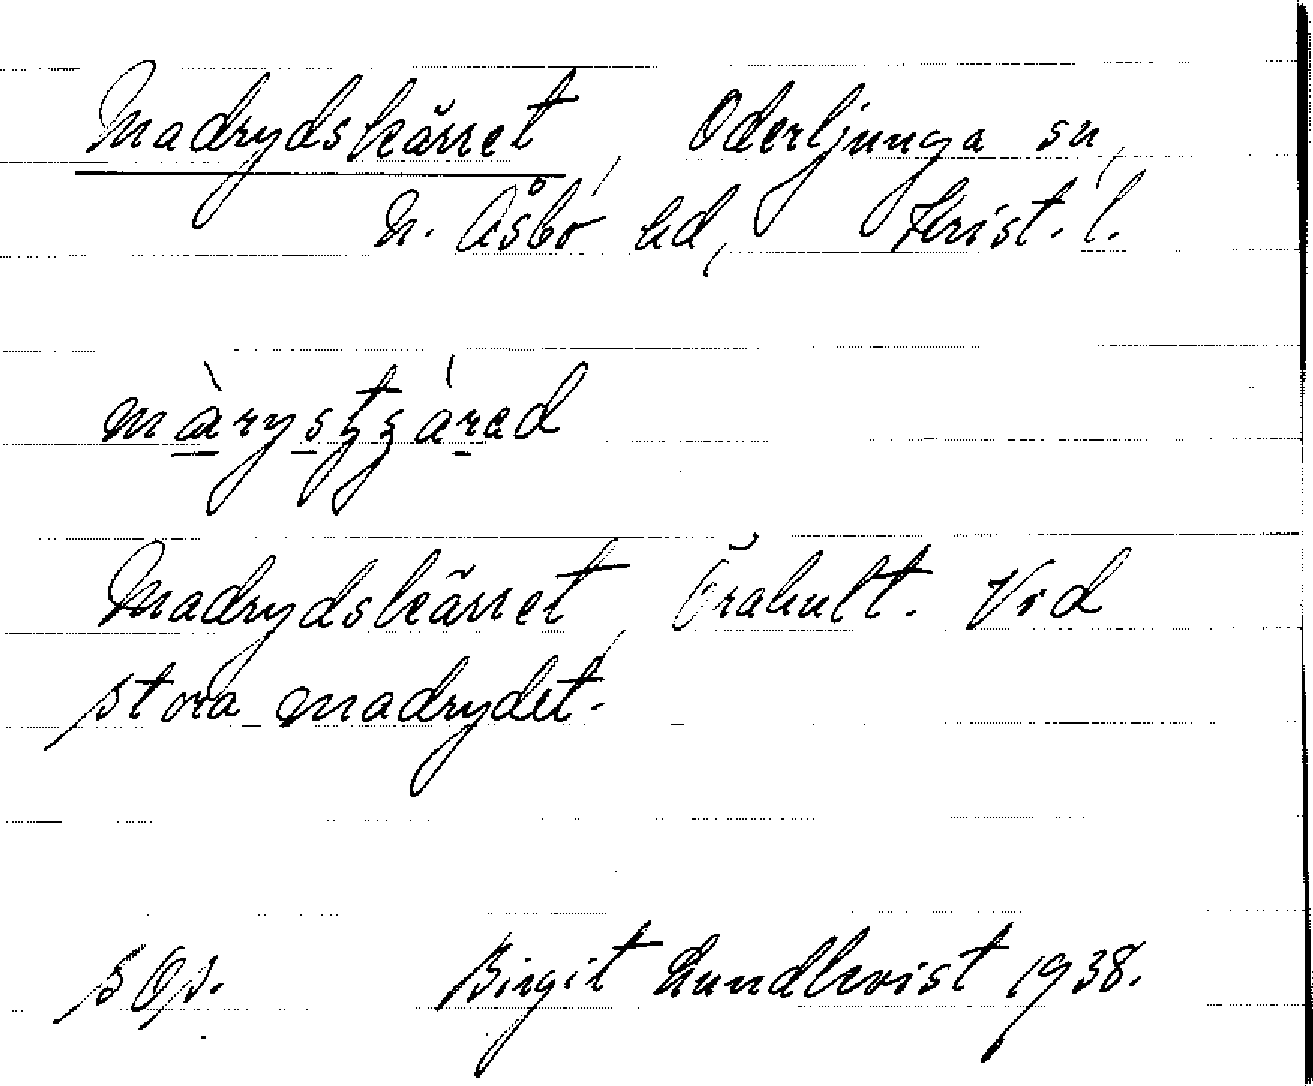 Madrydskärret, Oderljunga sn,
N. Åsbo hd, Krist. l.
Madrydskärret, Örahult. Vid
stora madrydet.
Birgit Lundkvist 1938.